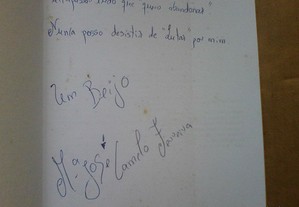 tudo que quero abandonar!
Nunca posso desistir de "lutar" por mim.
Um Beijo
Mª José Camelo Ferreira